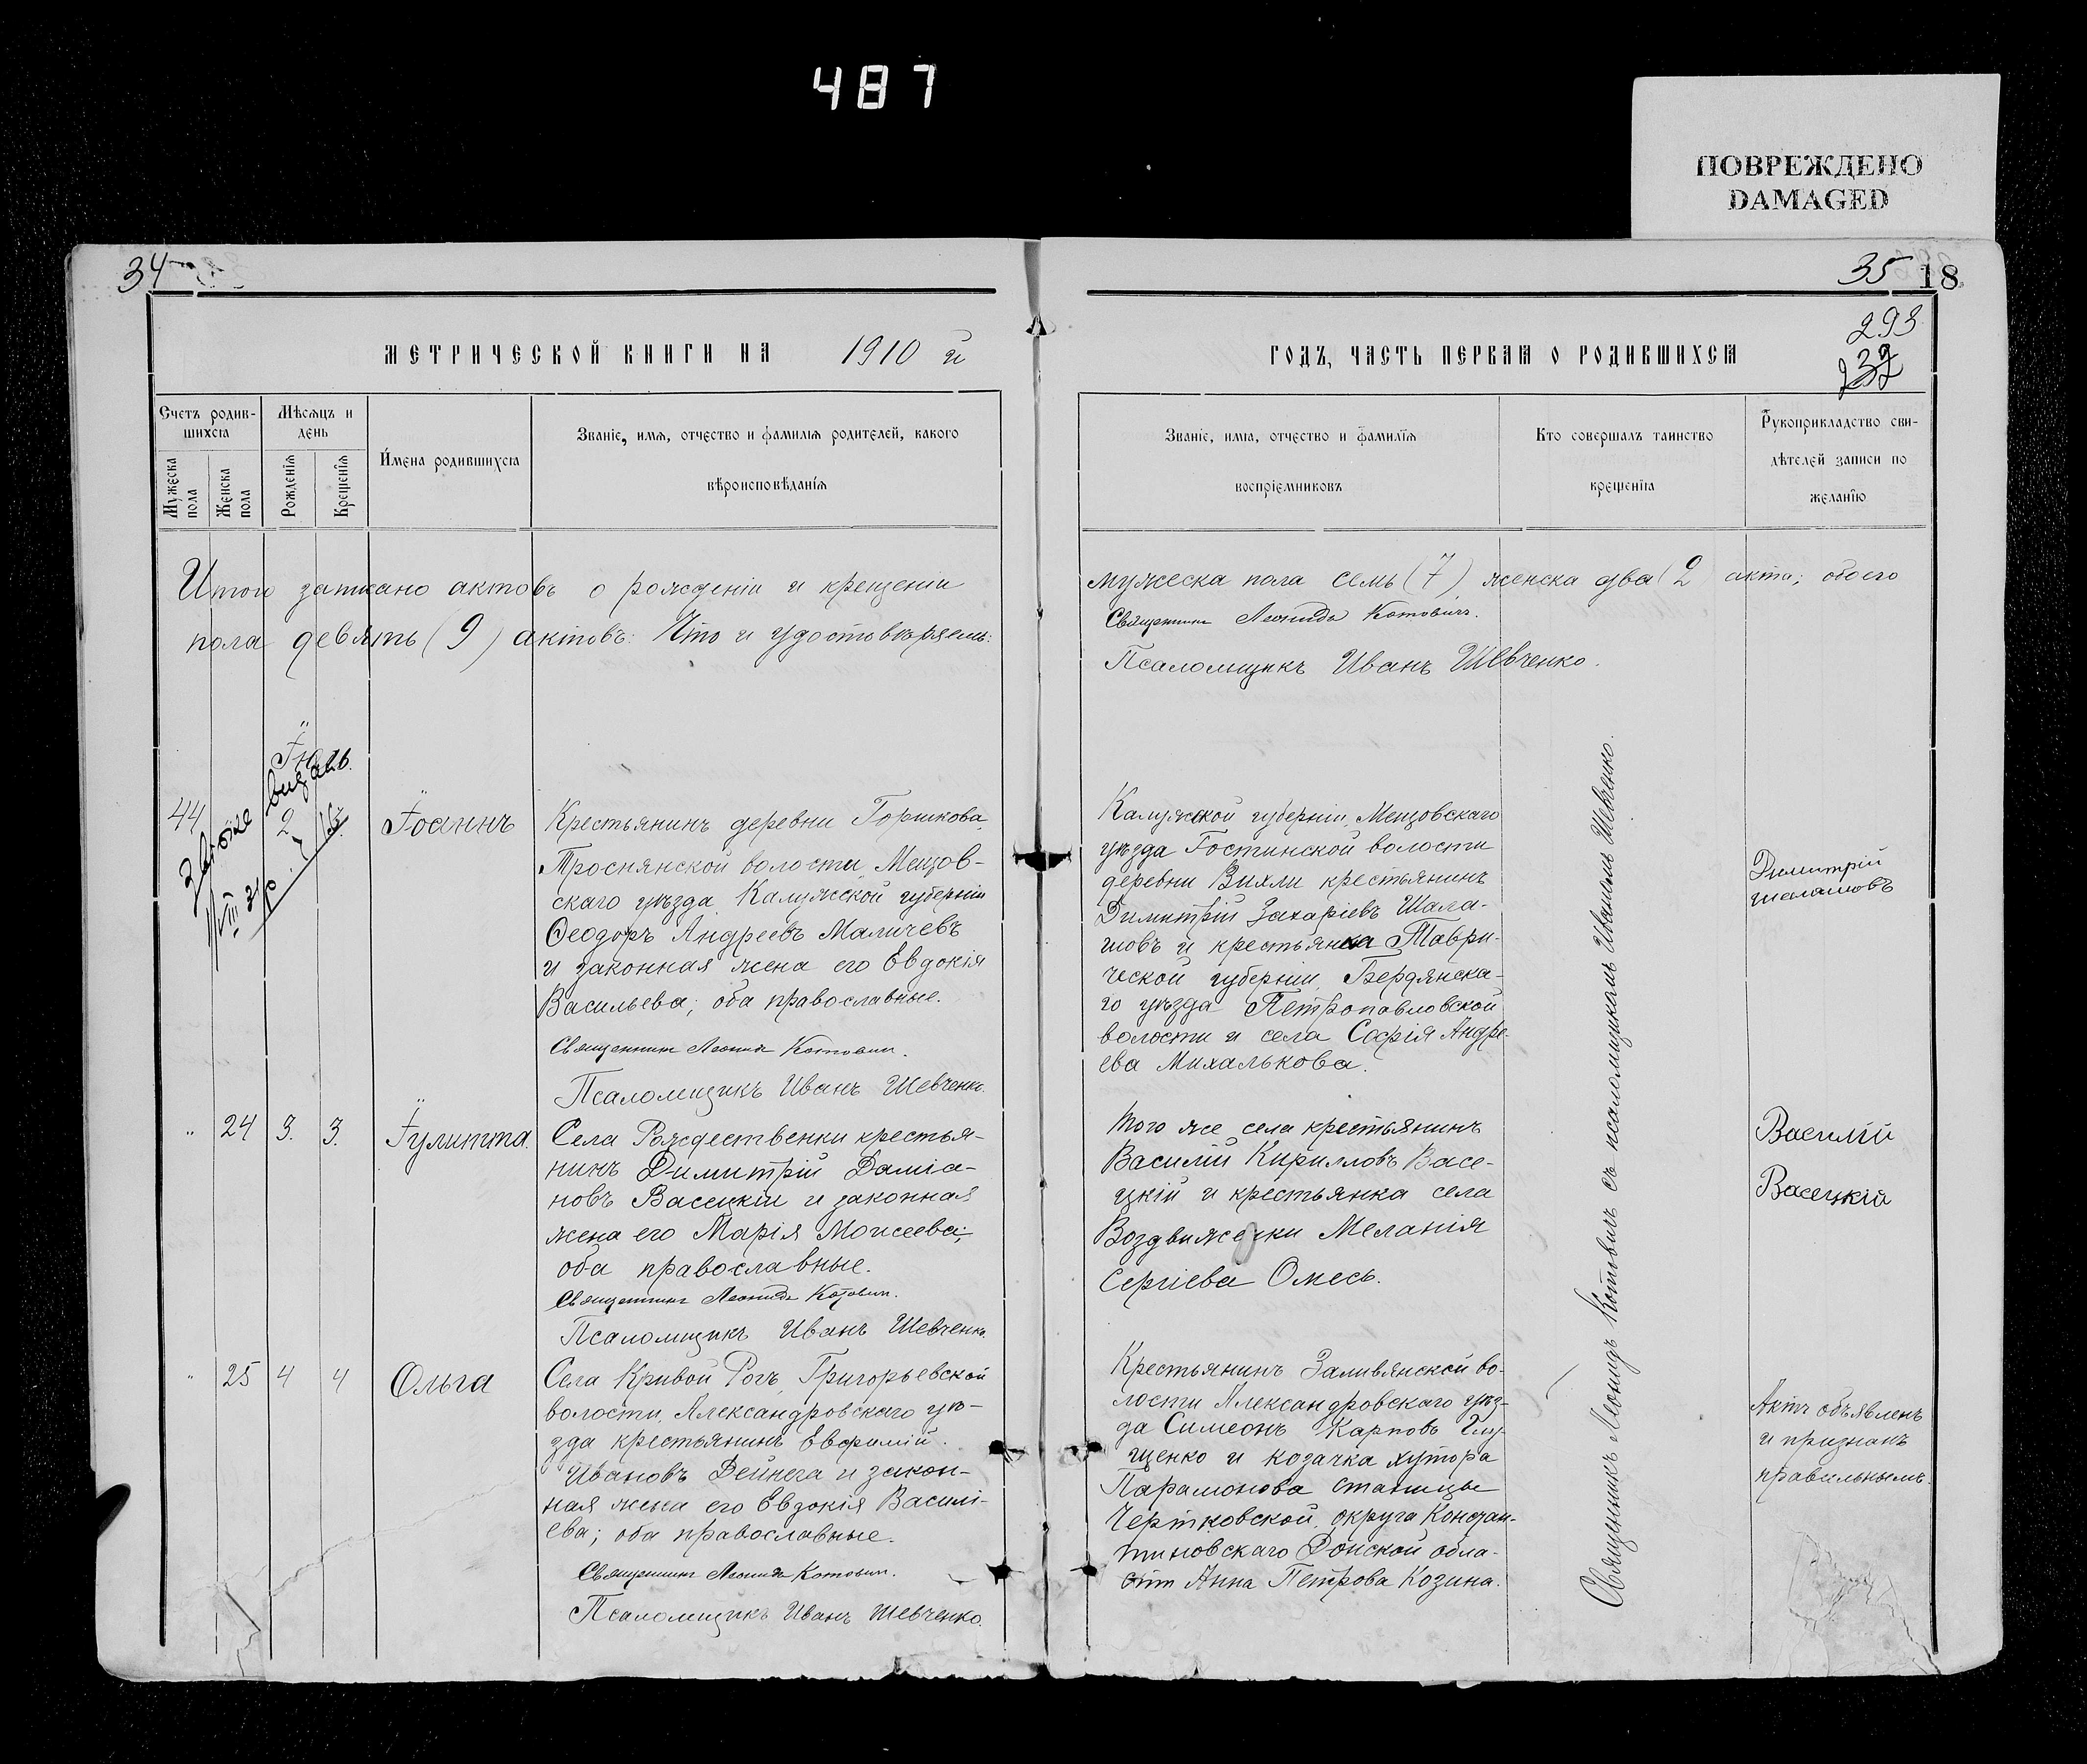 487
ПОВРЕЖДЕНО
DAMAGED
34
35
18
293
МЕТРИЧЕСКОЙ КНИГИ НА 1910 й
ГОДЪ, ЧАСТЬ ПЕРВАѦ О РОДИВШИХСѦ
Счетъ родив-
шихсѧ
Мѣсѧцъ и
день
Мужеска
пола
Женска
пола
Рожденїѧ
Крещенїѧ
Имена родившихсѧ
Званїе, имѧ, отчество и фамилїѧ родителей, какого
вѣроисповѣданїѧ
Званїе, имѧ, отчество и фамилїѧ
воспрїемниковъ
Кто совершалъ таинство
крещенїѧ
Рукоприкладство сви-
дѣтелей записи по
желанїю
Итого записано актовъ о рожденіи и крещеніи
мужеска пола семь (7), женска два (2) акта; обоего
пола девять (9) актовъ: Что и удостовѣряемъ:
Священникъ Леонидъ Котовичъ.
Псаломщикъ Иванъ Шевченко.
44
2
Іоаннъ
Крестьянинъ деревни Горшкова,
Троснянской волости, Мещов-
скаго уѣзда Калужской губерніи
Ѳеодоръ Андреевъ Маличевъ
и законная жена его Евдокія
Васильева; оба православные.
Священникъ Леонидъ Котовичъ.
Псаломщикъ Иванъ Шевченко.
Калужской губерніи, Мещовскаго
уѣзда Гостинской волости
деревни Вихли крестьянинъ
Димитрій Захаріевъ Шала-
шовъ и крестьянка Таври-
ческой губерніи, Бердянска-
го уѣзда Петропавловской
волости и села Софія Андре-
ева Михалькова.
Димитрій
шалашовъ
" 24 3. 3.
Іулитта.
Села Рождественки крестья-
нинъ Димитрій Даміа-
новъ Васецкій и законная
жена его Марія Моисеева;
оба православные.
Священникъ Леонидъ Котовичъ.
Псаломщикъ Иванъ Шевченко.
Того же села крестьянинъ
Василій Кирилловъ Васе-
цкій и крестьянка села
Воздвиженки Меланія
Сергіева Омесь.
Василій
Васецкій
" 25 4 4
Ольга
Села Кривой Рогъ, Григорьевской
волости, Александровскаго уѣ-
зда крестьянинъ Евфимій
Ивановъ Дейнега и закон-
ная жена его Евдокія Василі-
ева; оба православные.
Священникъ Леонидъ Котовичъ.
Псаломщикъ Иванъ Шевченко.
Крестьянинъ Заливянской во-
лости Александровскаго уѣз-
да Симеонъ Карповъ Глу-
щенко и козачка хутора
Парамонова станицы
Чертковской, округа Констан-
тиновскаго Донской обла-
сти Анна Петрова Козина.
Актъ объявленъ
и признанъ
правильнымъ.
Священникъ Леонидъ Котовичъ съ псаломщикомъ Иваномъ Шевченко.